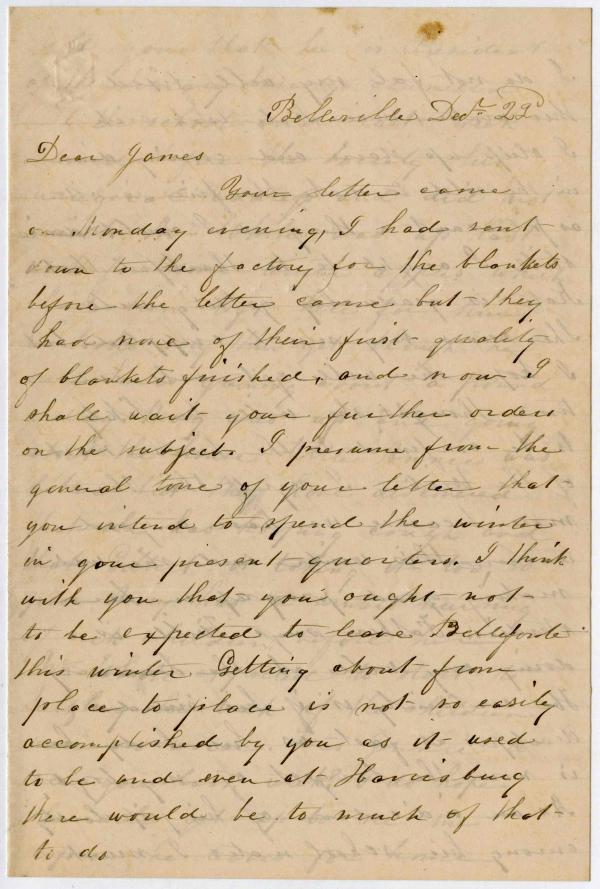 Belleville Decr 22d
Dear James
Your letter came
on Monday evening, I had sent
down to the factory for the blankets
before the letter came but they
had none of their first quality
of blankets finished, and now I
shall wait your further orders
on the subject. I presume from the
general tone of your letter that
you intend to spend the winter
in your present quarters. I think
with you that you ought not
to be expected to leave Bellefonte
this winter Getting about from
place to place is not so easily
accomplished by you as it used
to be and even at Harrisburg
there would be to much of that
to do